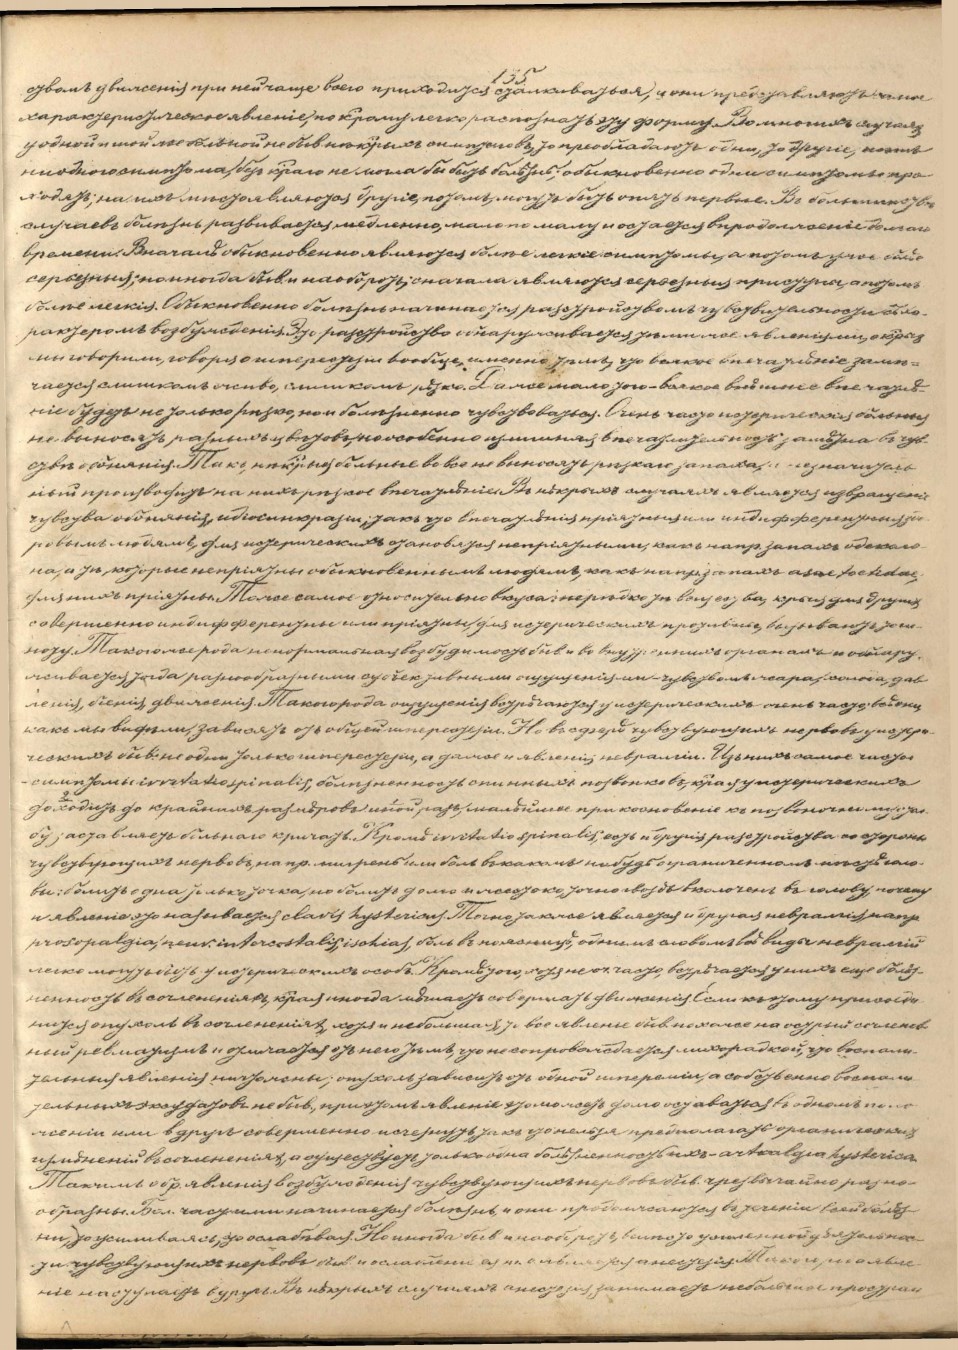 135
ствомъ движенія при ней чаще всего приходится сталкиваться, и они представляютъ самое
характеристическое явленіе, по кот҃рому легко распознать эту форму. Во многихъ случаяхъ
у одной и той же больной не быв. нѣк҃рыхъ симптомовъ, то преобладаютъ одни, то другіе, нѣтъ
ни одного симптома, безъ к҃раго не могла бы быть болѣзнь; обыкновенно одни симптомы про-
ходятъ; на ихъ мѣсто являются другіе, потомъ могутъ быть опять первые. Въ большинствѣ
случаевъ болѣзнь развивается медленно, мало по малу и остается впродолженіе долгаго
времени. Вначалѣ обыкновенно являются болѣе легкіе симптомы, а потомъ уже болѣе
серьезные; но иногда быв. и наоборотъ; сначала являются серьезные припадки, а потомъ
болѣе легкія. Обыкновенно болѣзнь начинается разстройствомъ чувствительности съ ха-
рактеромъ возбужденія. Это разстройство обнаруживается тѣми же явленіями, о к҃рыхъ
мы говорили, говоря о гиперестезіи вообще, именно тѣмъ, что всякое впечатлѣніе замѣ-
чается слишкомъ живо, слишкомъ рѣзко. Даже мало того - всякое внѣшнее впечатлѣ-
ніе будетъ не только рѣзко, но и болѣзненно чувствоваться. Очень часто истерическія больныя
не выносятъ разныхъ цвѣтовъ, но особенно излишняя впечатлительность замѣтна въ чув-
ствѣ обонянія. Такъ, нѣк҃рыя больные вовсе не выносятъ рѣзкаго запаха; незначитель-
ный производитъ на нихъ рѣзкое впечатлѣніе. Въ нѣк҃рыхъ случаяхъ являются извращенія
чувства обонянія, идіосинкразіи; такъ что впечатлѣнія пріятныя или индифферентныя здо-
ровымъ людямъ, для истерическихъ становятся непріятными, какъ напр. запахъ одеколо-
на, а тѣ, которые непріятны обыкновеннымъ людямъ, какъ напр. запахъ asae foetidae,
для нихъ пріятны. Тоже самое относительно вкуса: нерѣдко тѣ вещества, к҃рыя для другихъ
совершенно индифферентны или пріятны, для истерическихъ противны, вызываютъ тош-
ноту. Такого же рода ненормальная возбудимость быв. и во внутреннихъ органахъ и обнару-
живается тогда разнообразными субъективными ощущеніями - чувствомъ жара, холода, дав-
ленія, біенія, движенія. Такого рода ощущенія встрѣчаются у истерическихъ очень часто;
какъ мы видѣли, зависятъ отъ общей гиперестезіи. Но въ сферѣ чувствующихъ нервовъ у истери-
ческихъ быв. не одни только гиперестезіи, а даже и явленія невралгіи. Изъ нихъ самое частое
- симптомы irritatio spinalis, болѣзненность спинныхъ позвонковъ, к҃рая у истерическихъ
доходитъ до крайнихъ размѣровъ; иной разъ малѣйшее прикосновеніе къ позвоночному стол-
бу, заставляетъ больнаго кричать. Кромѣ irritatio spinalis, есть и другія разстройства со стороны
чувствующихъ нервовъ, напр. мигрень или боль въ какомъ нибудь ограниченномъ мѣстѣ голо-
вы: болитъ одна только точка, но болитъ долго и жестоко, точно гвоздь вколоченъ въ голову, почему
и явленіе это называется clavis hystericus. Точно также является и другая невралгія, напр.
prosopalgia, neur. intercostalis, ischias, боль въ поясницѣ, однимъ словомъ всѣ виды невралгій
легко могутъ быть у истерическихъ особъ. Кромѣ того, хотя не оч. часто, встрѣчается у нихъ еще болѣз-
ненность въ сочлененіяхъ, к҃рая иногда мѣшаетъ совершать движенія. Если къ этому присоеди-
нится опухоль въ сочлененіяхъ, хотя и небольшая, то все явленье быв. похоже на острый сочленов-
ный ревматизмъ и отличается отъ него тѣмъ, что не сопровождается лихорадкой, что воспали-
тельныя явленія ничтожны; опухоль зависитъ отъ одной гипереміи, а собственно воспали-
тельныхъ эксудатовъ не быв., при этомъ явленіе это можетъ долго оставаться въ одномъ поло-
женіи или вдругъ совершенно исчезнуть, такъ что нельзя предполагать органическихъ
измѣненій въ сочлененіяхъ, а существуетъ только одна болѣзненность ихъ - artralgia hysterica.
Такимъ обр. явленія возбужденія чувствующихъ нервовъ быв. чрезвычайно разно-
образны. Бол. частью ими начинается болѣзнь, и они продолжаются въ теченіи всей болѣз-
ни, то усиливаясь, то ослабѣвая. Но иногда быв. и наоборотъ, вмѣсто усиленной дѣятельнос-
ти чувствующихъ нервовъ быв. ослабленіе ея и является анестезія. Такое явле-
ніе наступаетъ вдругъ. Въ нѣк҃рыхъ случаяхъ анестезія занимаетъ небольшое простран-